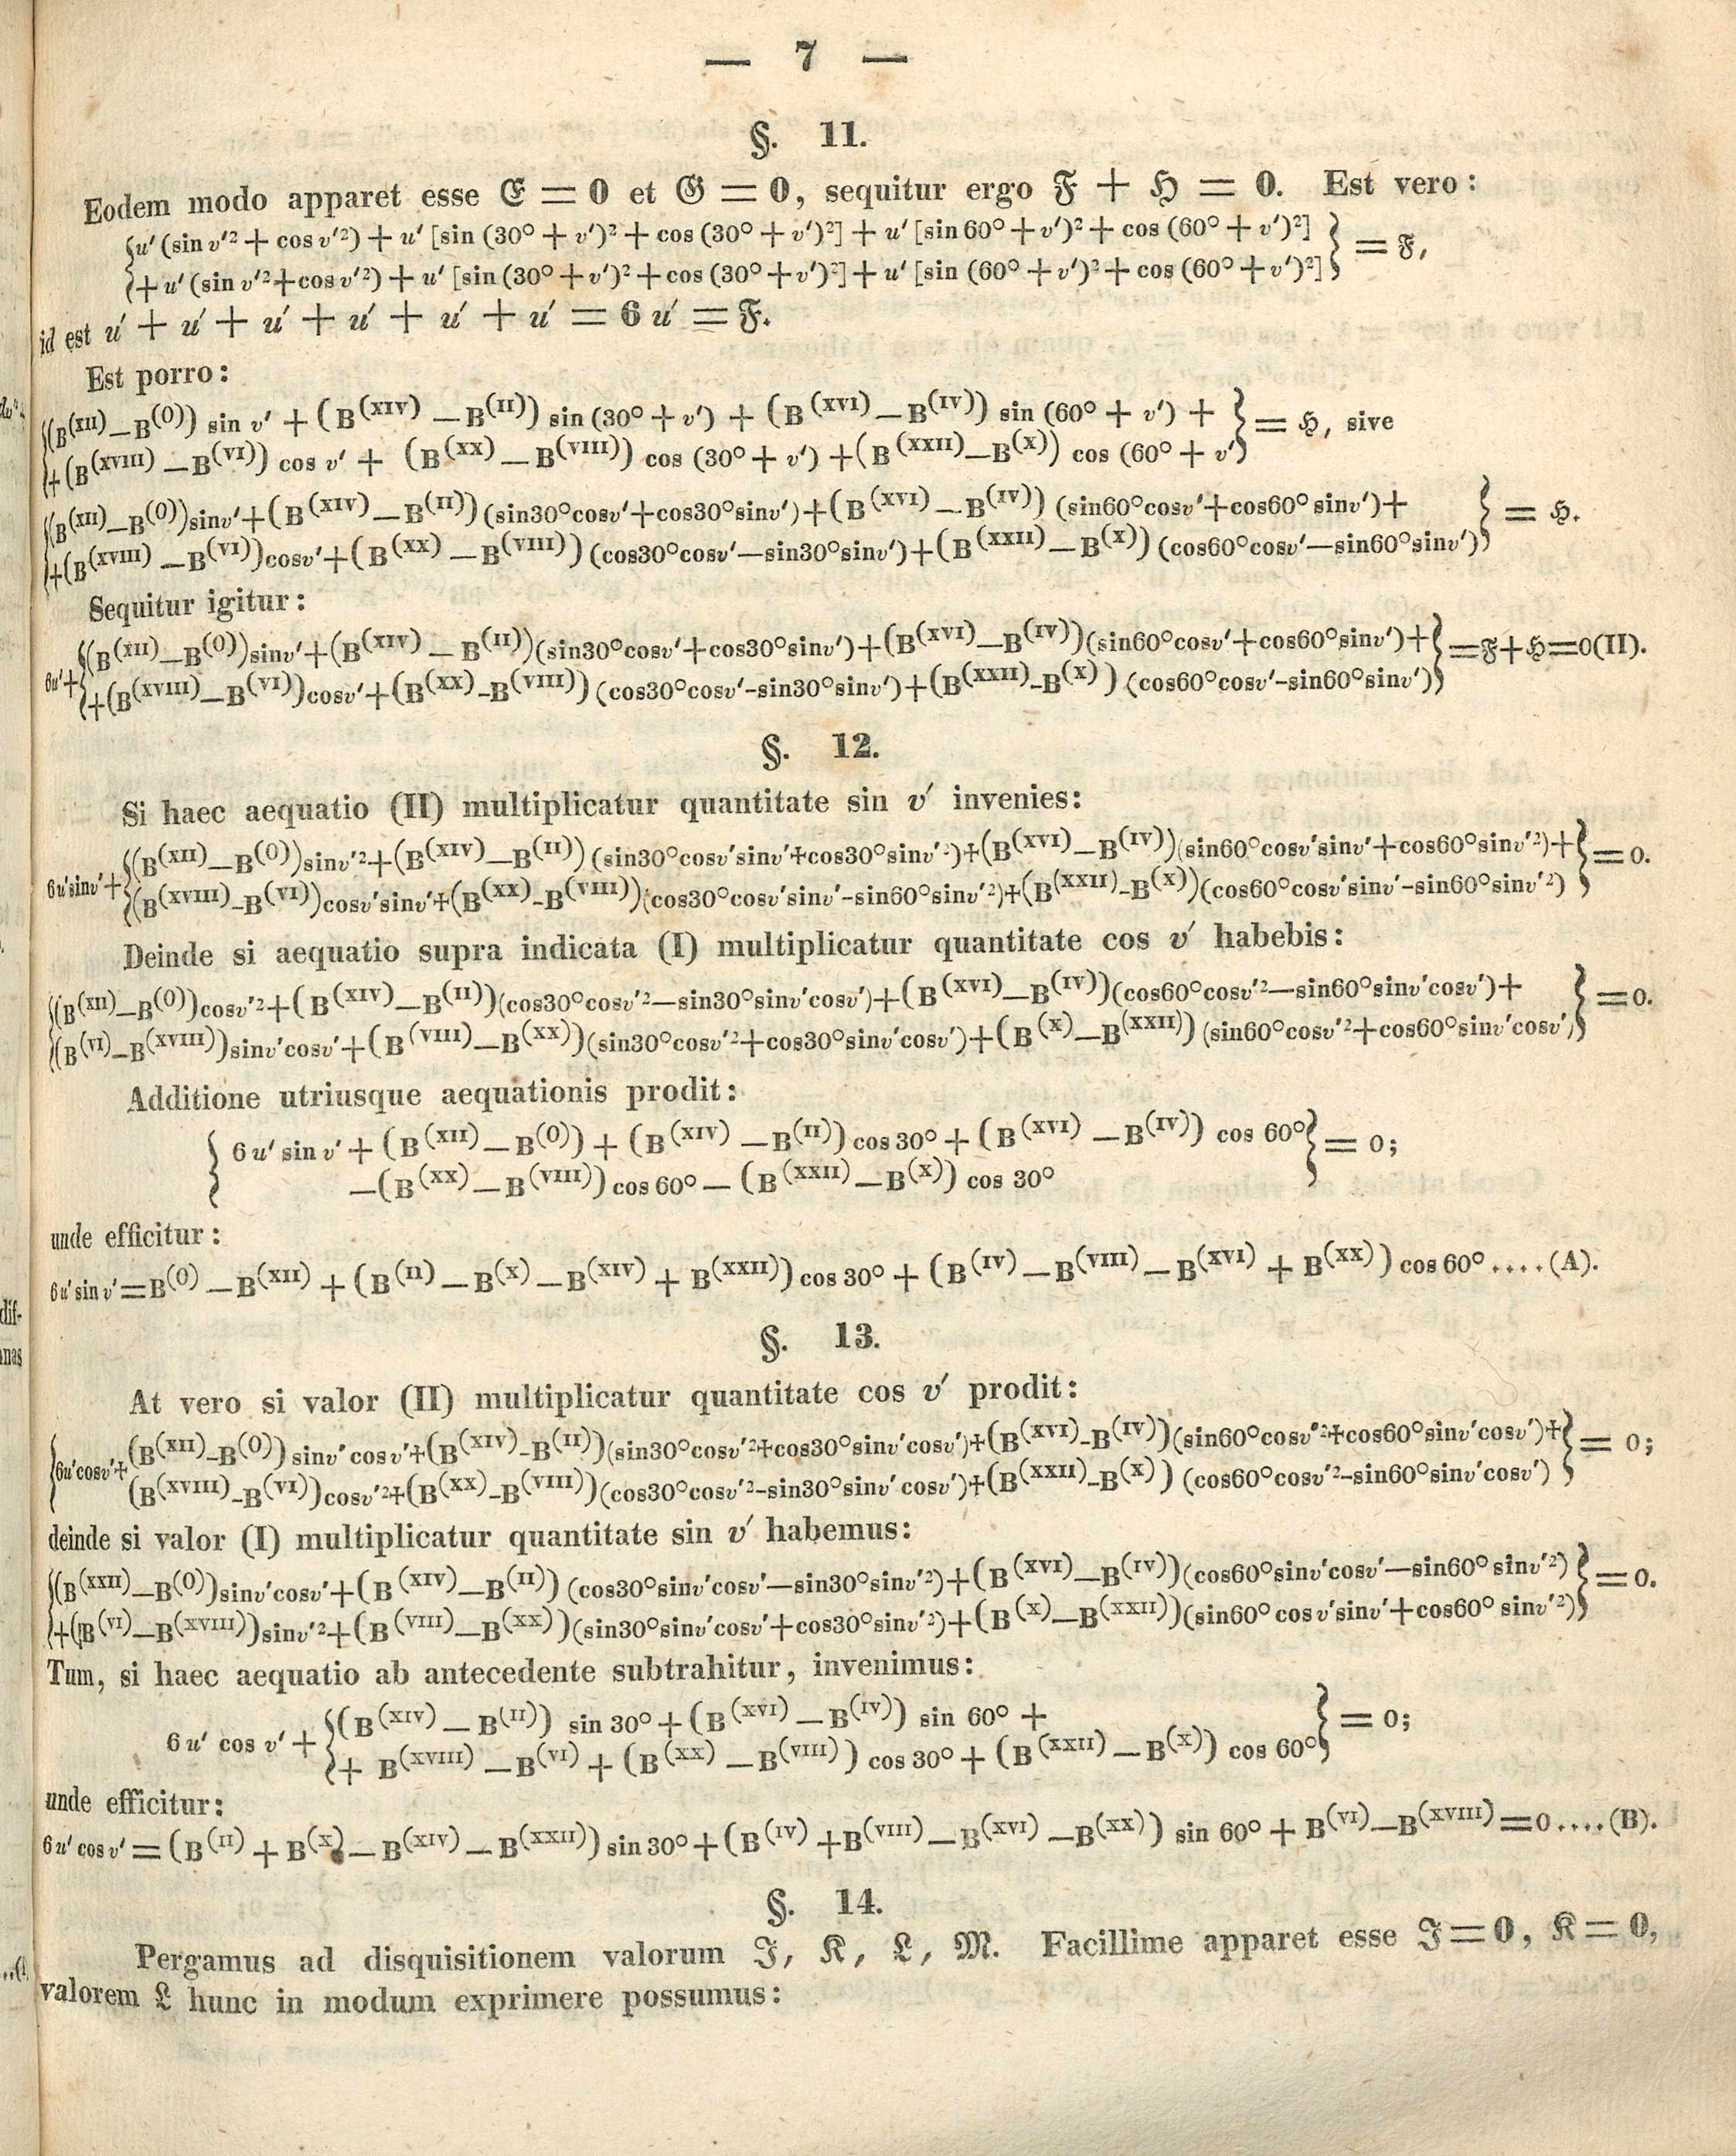 — 7 —
§. 11.
Eodem modo apparet esse 𝔈 = 0 et 𝔊 = 0, sequitur ergo 𝔉 + ℌ = 0. Est vero:
{u′ (sin v′² + cos v′²) + u′ [sin (30° + v′)² + cos (30° + v′)²] + u′ [sin 60° + v′)² + cos (60° + v′)²]
+ u′ (sin v′² + cos v′²) + u′ [sin (30° + v′)² + cos (30° + v′)²] + u′ [sin (60° + v′)² + cos (60° + v′)²]} = 𝔉,
id est u′ + u′ + u′ + u′ + u′ + u′ = 6 u′ = 𝔉.
Est porro:
{(B^(XII) — B^(0)) sin v′ + (B^(XIV) — B^(II)) sin (30° + v′) + (B^(XVI) — B^(IV)) sin (60° + v′) +
+(B^(XVIII) — B^(VI)) cos v′ + (B^(XX) — B^(VIII)) cos (30° + v′) + (B^(XXII) — B^(X)) cos (60° + v′} = ℌ, sive
{(B^(XII) — B^(0)) sin v′ + (B^(XIV) — B^(II)) (sin 30° cos v′ + cos 30° sin v′) + (B^(XVI) — B^(IV)) (sin 60° cos v′ + cos 60° sin v′) +
+(B^(XVIII) — B^(VI)) cos v′ + (B^(XX) — B^(VIII)) (cos 30° cos v′ — sin 30° sin v′) + (B^(XXII) — B^(X)) (cos 60° cos v′ — sin 60° sin v′)} = ℌ.
Sequitur igitur:
6u′ + {(B^(XII) — B^(0)) sin v′ + (B^(XIV) — B^(II)) (sin 30° cos v′ + cos 30° sin v′) + (B^(XVI) — B^(IV)) (sin 60° cos v′ + cos 60° sin v′) +
+(B^(XVIII) — B^(VI)) cos v′ + (B^(XX) - B^(VIII)) (cos 30° cos v′ - sin 30° sin v′) + (B^(XXII) - B^(X)) (cos 60° cos v′ - sin 60° sin v′)} = 𝔉 + ℌ = 0 (II).
§. 12.
Si haec aequatio (II) multiplicatur quantitate sin v′ invenies:
6u′ sin v′ + {(B^(XII) — B^(0)) sin v′² + (B^(XIV) — B^(II)) (sin 30° cos v′ sin v′ + cos 30° sin v′²) + (B^(XVI) — B^(IV)) (sin 60° cos v′ sin v′ + cos 60° sin v′²) +
(B^(XVIII) - B^(VI)) cos v′ sin v′ + (B^(XX) - B^(VIII)) (cos 30° cos v′ sin v′ - sin 60° sin v′²) + (B^(XXII) - B^(X)) (cos 60° cos v′ sin v′ - sin 60° sin v′²)} = 0.
Deinde si aequatio supra indicata (I) multiplicatur quantitate cos v′ habebis:
{(B^(XII) — B^(0)) cos v′² + (B^(XIV) — B^(II)) (cos 30° cos v′² — sin 30° sin v′ cos v′) + (B^(XVI) — B^(IV)) (cos 60° cos v′² — sin 60° sin v′ cos v′) +
(B^(VI) — B^(XVIII)) sin v′ cos v′ + (B^(VIII) — B^(XX)) (sin 30° cos v′² + cos 30° sin v′ cos v′) + (B^(X) — B^(XXII)) (sin 60° cos v′² + cos 60° sin v′ cos v′)} = 0.
Additione utriusque aequationis prodit:
{6 u′ sin v′ + (B^(XII) — B^(0)) + (B^(XIV) — B^(II)) cos 30° + (B^(XVI) — B^(IV)) cos 60°
— (B^(XX) — B^(VIII)) cos 60° — (B^(XXII) — B^(X)) cos 30°} = 0;
unde efficitur:
6 u′ sin v′ = B^(0) — B^(XII) + (B^(II) — B^(X) — B^(XIV) + B^(XXII)) cos 30° + (B^(IV) — B^(VIII) — B^(XVI) + B^(XX)) cos 60° .... (A).
§. 13.
At vero si valor (II) multiplicatur quantitate cos v′ prodit:
{6u′ cos v′ + (B^(XII) - B^(0)) sin v′ cos v′ + (B^(XIV) - B^(II)) (sin 30° cos v′² + cos 30° sin v′ cos v′) + (B^(XVI) - B^(IV)) (sin 60° cos v′² + cos 60° sin v′ cos v′) +
(B^(XVIII) - B^(VI)) cos v′² + (B^(XX) - B^(VIII)) (cos 30° cos v′² - sin 30° sin v′ cos v′) + (B^(XXII) - B^(X)) (cos 60° cos v′² - sin 60° sin v′ cos v′)} = 0;
deinde si valor (I) multiplicatur quantitate sin v′ habemus:
{(B^(XXII) — B^(0)) sin v′ cos v′ + (B^(XIV) — B^(II)) (cos 30° sin v′ cos v′ — sin 30° sin v′²) + (B^(XVI) — B^(IV)) (cos 60° sin v′ cos v′ — sin 60° sin v′²)
+(B^(VI) — B^(XVIII)) sin v′² + (B^(VIII) — B^(XX)) (sin 30° sin v′ cos v′ + cos 30° sin v′²) + (B^(X) — B^(XXII)) (sin 60° cos v′ sin v′ + cos 60° sin v′²)} = 0.
Tum, si haec aequatio ab antecedente subtrahitur, invenimus:
6 u′ cos v′ + {(B^(XIV) — B^(II)) sin 30° + (B^(XVI) — B^(IV)) sin 60° +
+ B^(XVIII) — B^(VI) + (B^(XX) — B^(VIII)) cos 30° + (B^(XXII) — B^(X)) cos 60°} = 0;
unde efficitur:
6 u′ cos v′ = (B^(II) + B^(X) — B^(XIV) — B^(XXII)) sin 30° + (B^(IV) + B^(VIII) — B^(XVI) — B^(XX)) sin 60° + B^(VI) — B^(XVIII) = 0 .... (B).
§. 14.
Pergamus ad disquisitionem valorum 𝔍, 𝔎, 𝔏, 𝔐. Facillime apparet esse 𝔍 = 0, 𝔎 = 0,
valorem 𝔏 hunc in modum exprimere possumus: